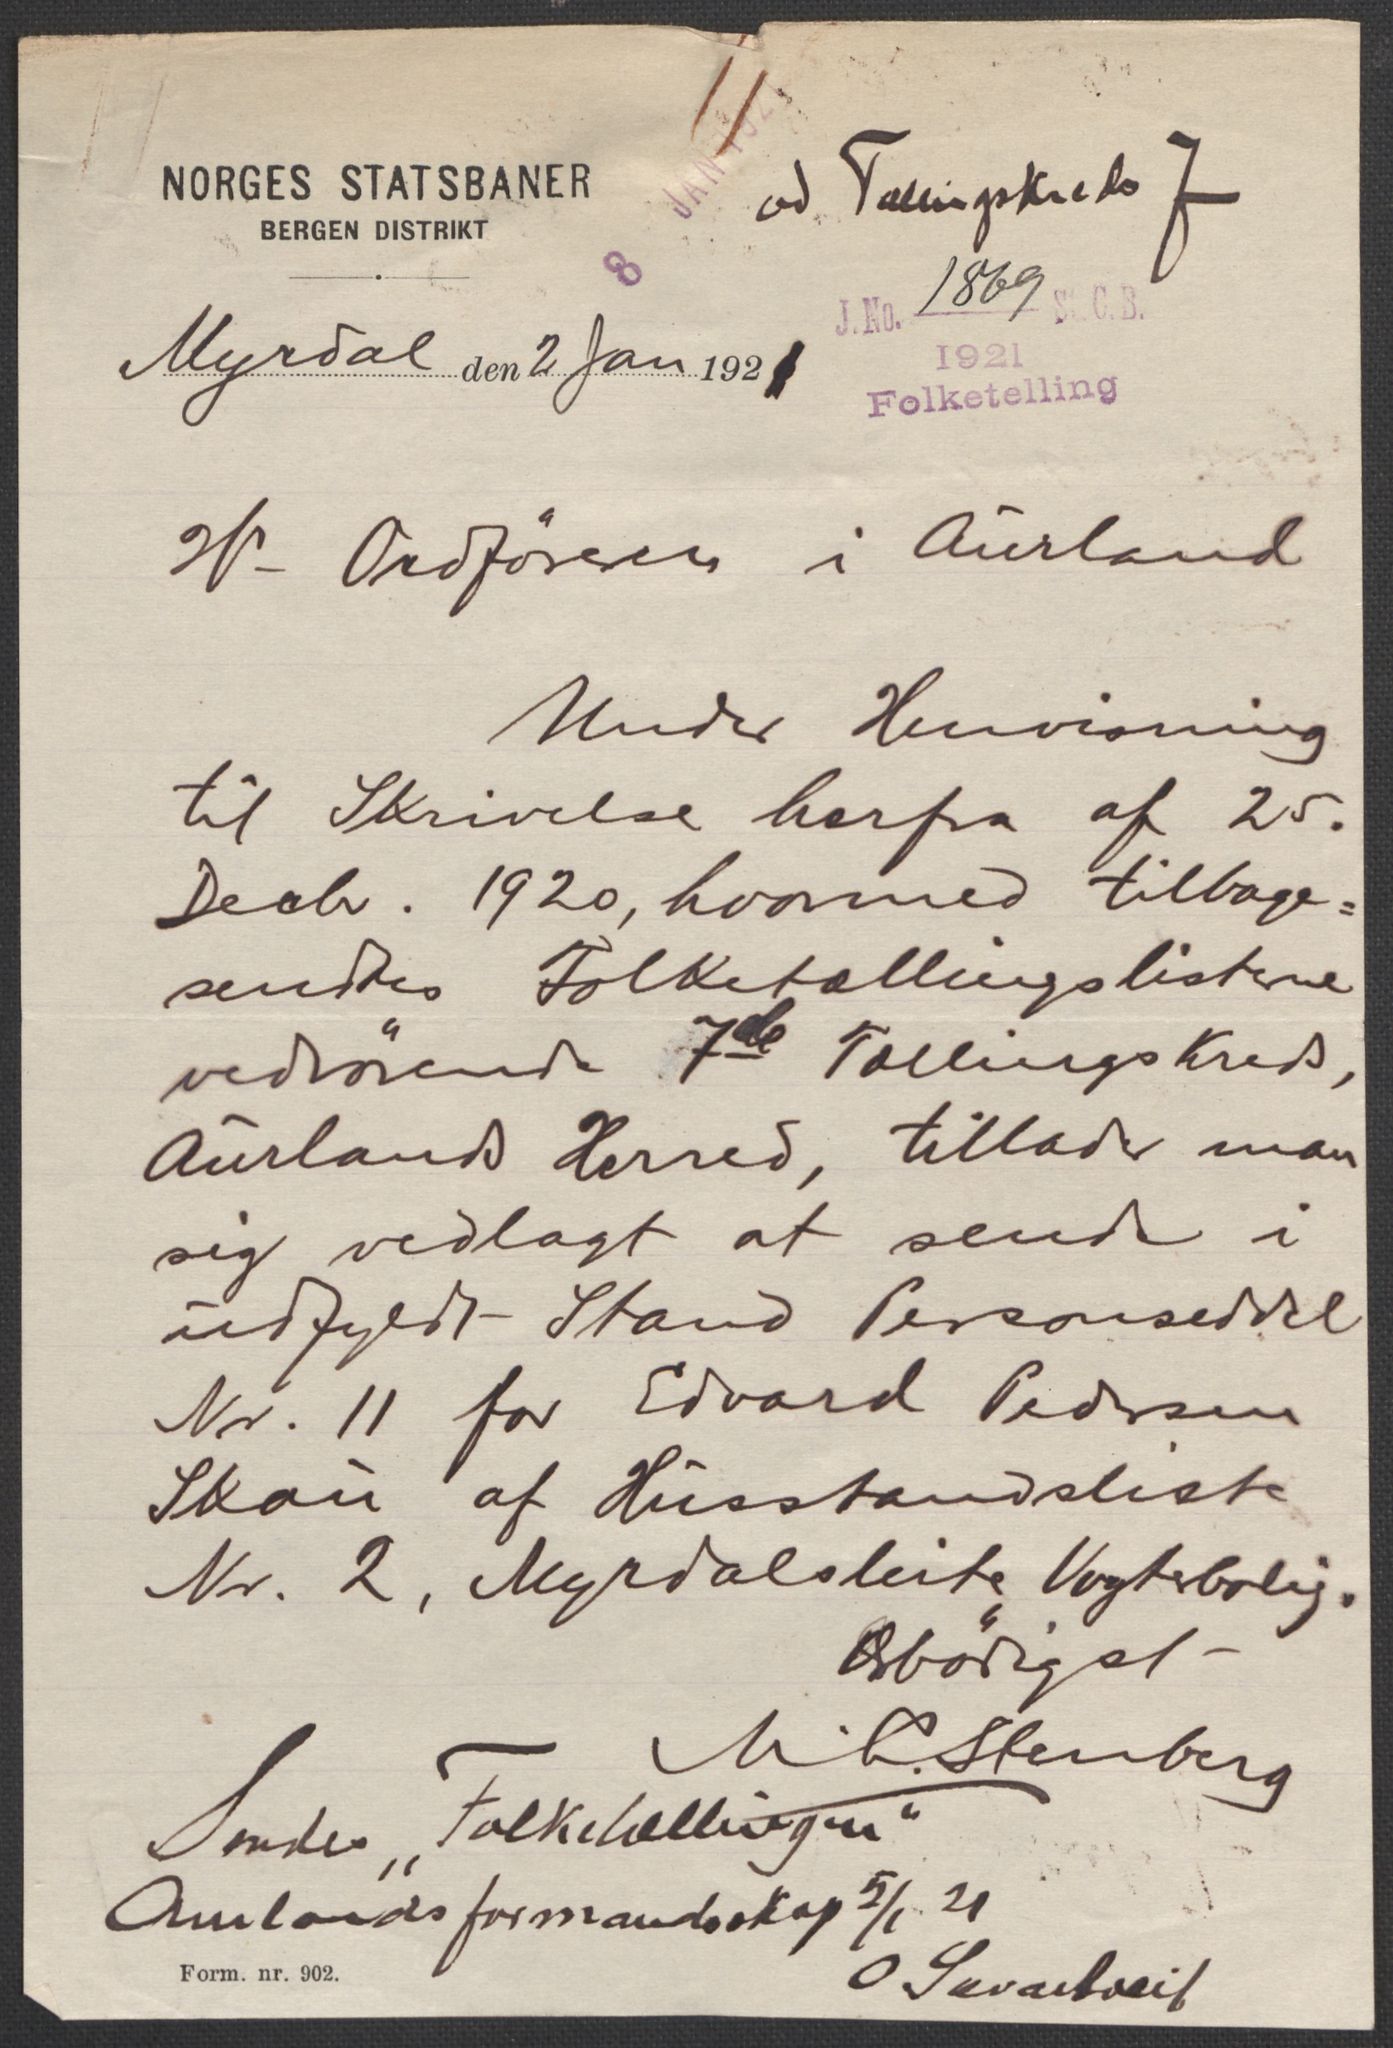 NORGES STATSBANER
BERGEN DISTRIKT
8 JAN 192
ad Tællingskreds 7
J. No. 1869 St. C. B.
1921
Folketelling
Myrdal den 2 Jan 1921
Hr. Ordföreren i Aurland
Under Henvisning
til Skrivelse herfra af 25.
Decbr. 1920, hvormed tilbage=
sendtes Folketællingslisterne
vedrörende 7de Tællingskreds,
Aurlands Herred, tillader man
sig vedlagt at sende i
udfyldt Stand Personseddel
Nr. 11 for Edvard Pedersen
Skau af Husstandsliste
Nr. 2, Myrdalsleite Vogterbolig.
Ærbödigst
Stenberg
Sendes „Folketællingen"
Aurlands formandsskap 5/1 21
O
Form. nr. 902.